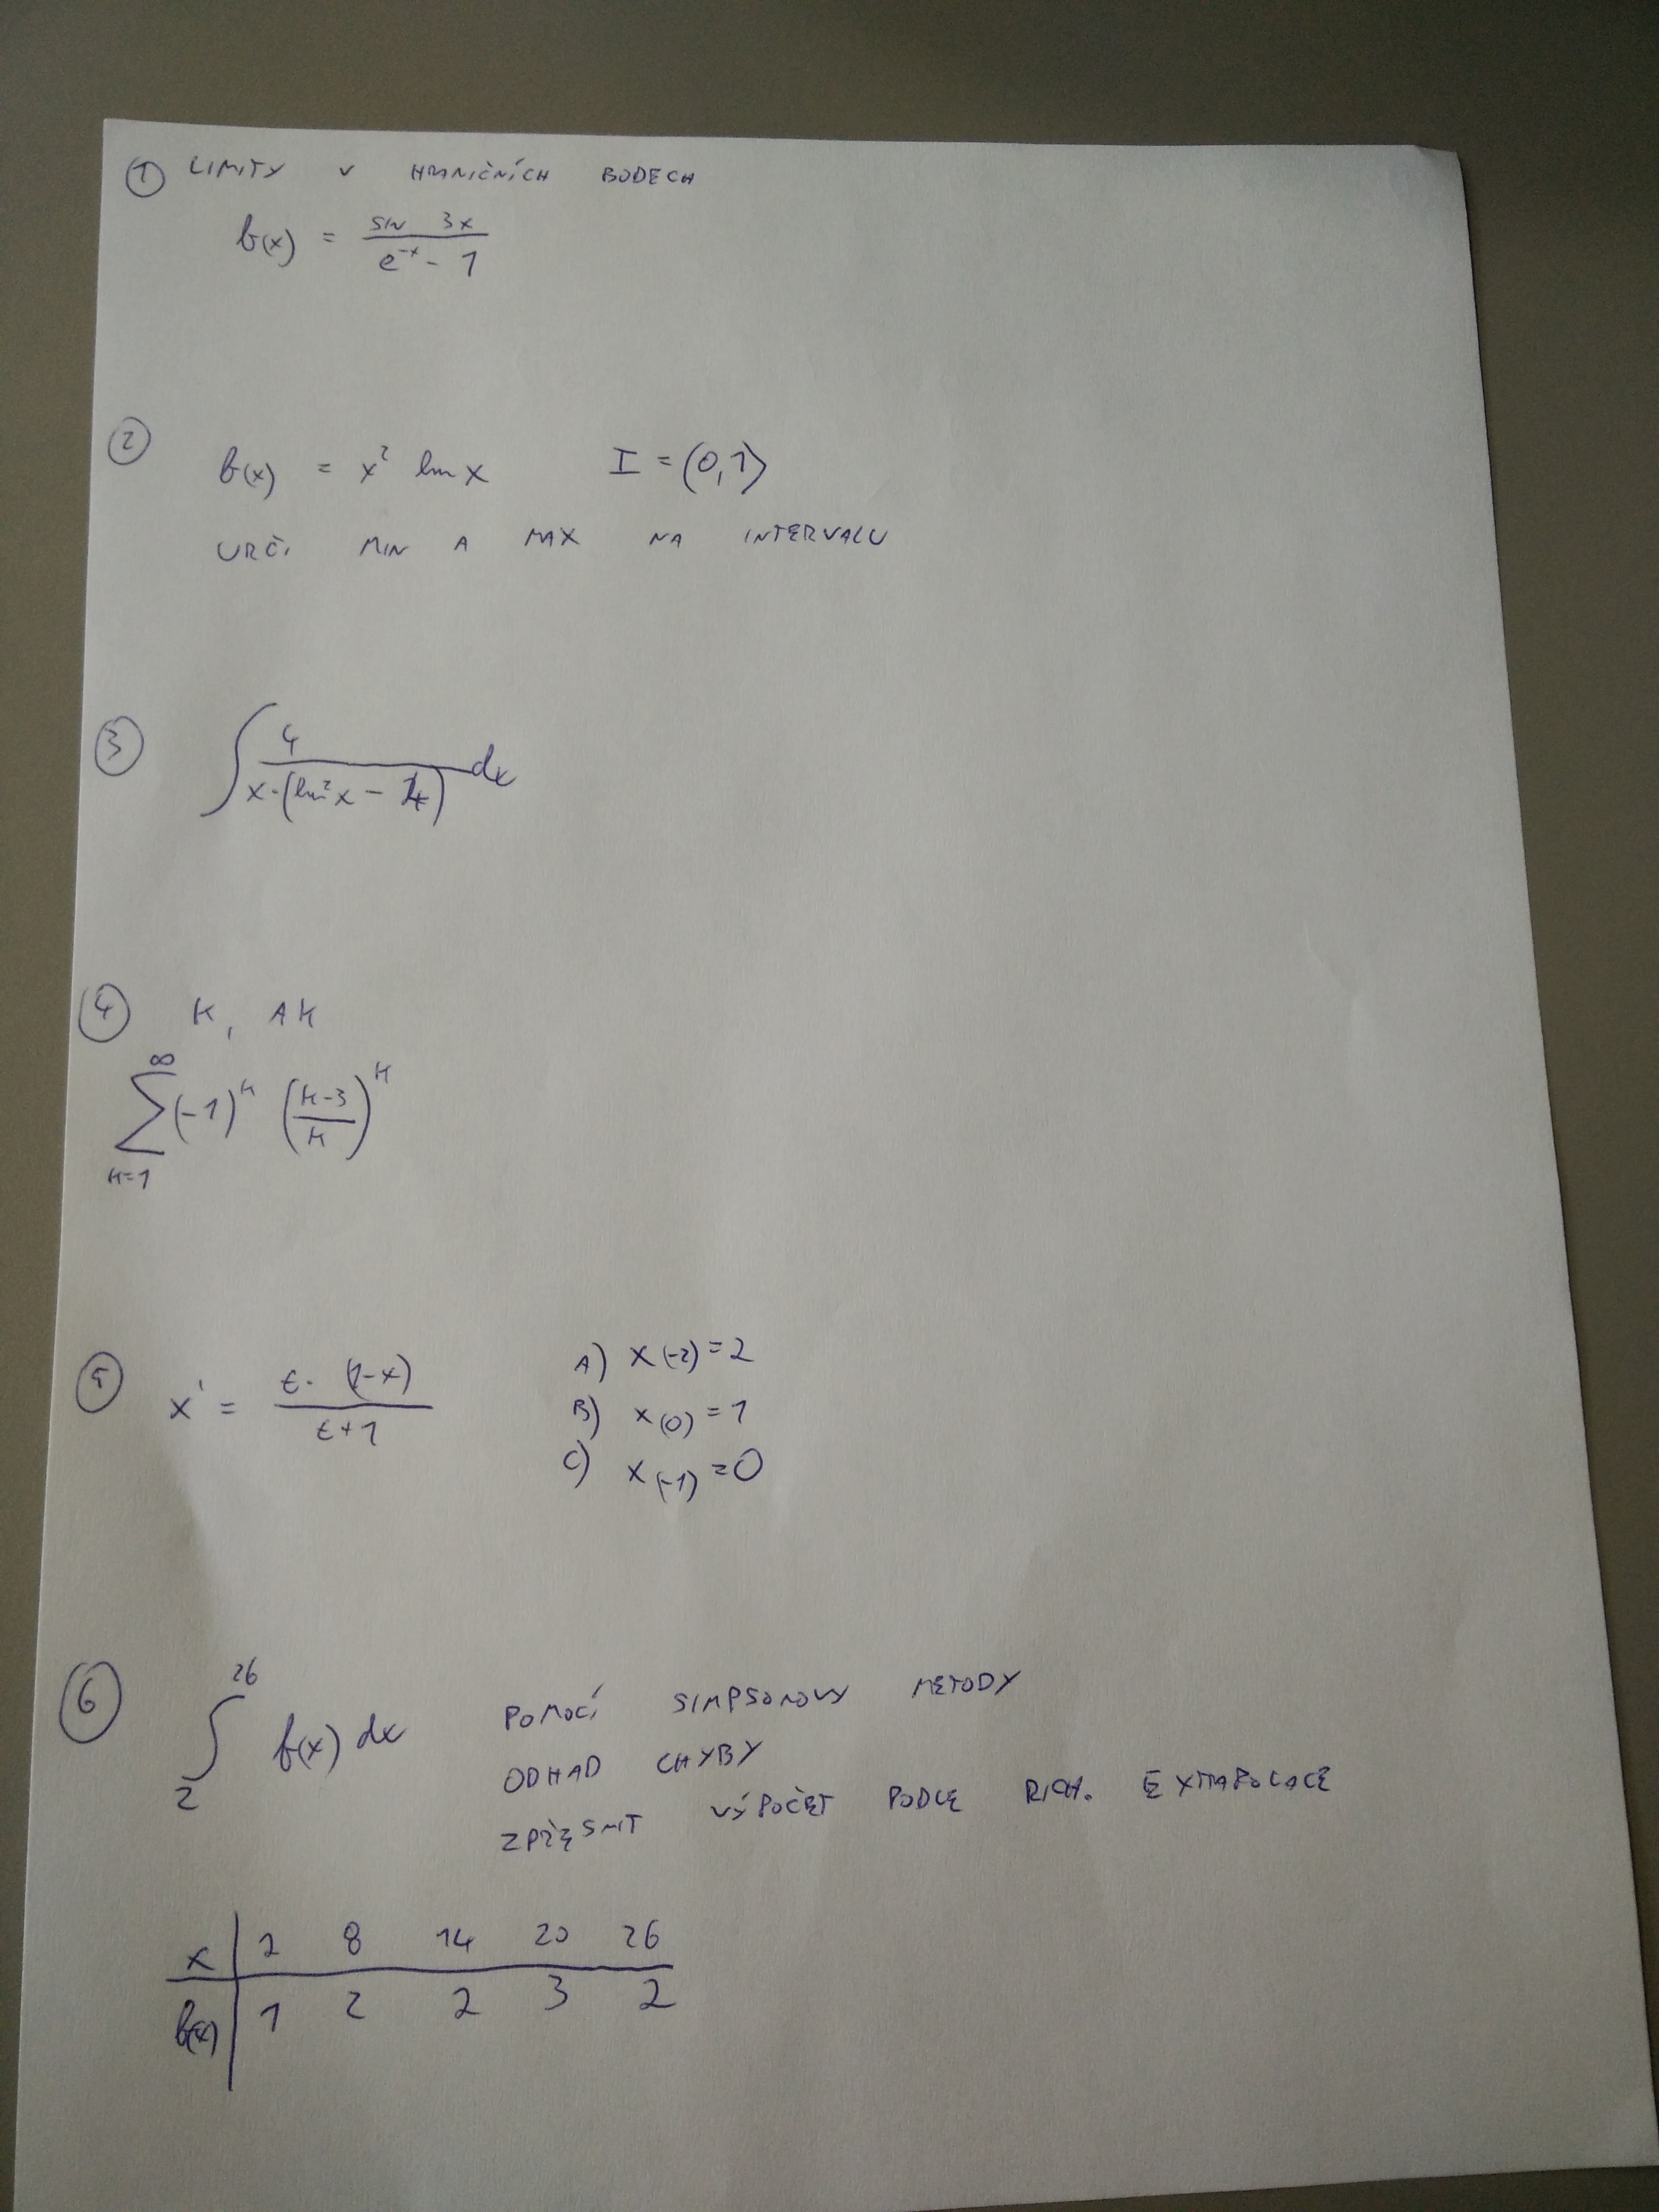 ① LIMITY V HRANIČNÍCH BODECH
f(x) = sin 3x / (e^-x - 1)
② f(x) = x² ln x I = (0,1⟩
URČI MIN A MAX NA INTERVALU
③ ∫ 4 / (x·(ln²x - 4)) dx
④ K, AK
∞
∑ (-1)^k ((k-3)/k)^k
k=1
⑤ x' = t·(1-x) / (t+1)
A) x(-2) = 2
B) x(0) = 1
C) x(-1) = 0
⑥ ∫₂²⁶ f(x) dx
POMOCÍ SIMPSONOVY METODY
ODHAD CHYBY
ZPŘESNIT VÝPOČET PODLE RICH. EXTRAPOLACE
x | 2 8 14 20 26
f(x) | 1 2 2 3 2